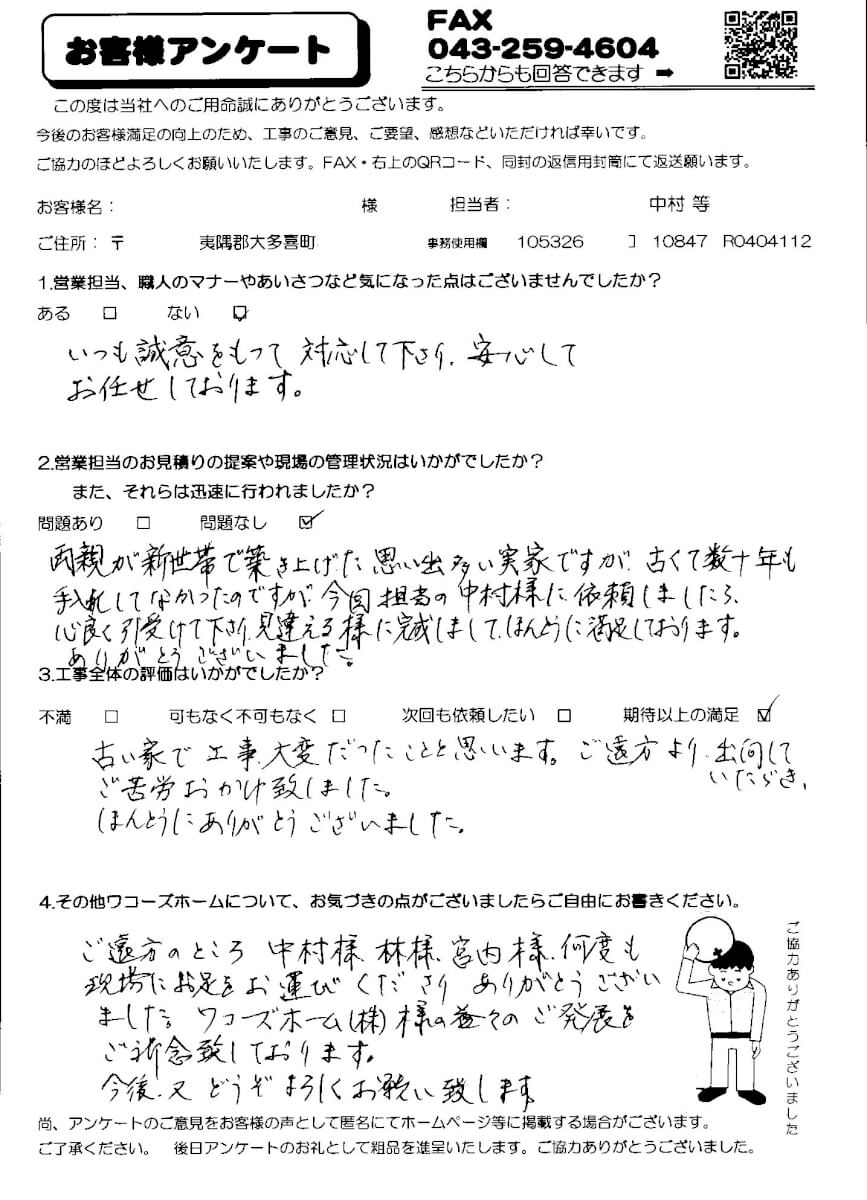 お客様アンケート
FAX
043-259-4604
こちらからも回答できます ➡
この度は当社へのご用命誠にありがとうございます。
今後のお客様満足の向上のため、工事のご意見、ご要望、感想などいただければ幸いです。
ご協力のほどよろしくお願いいたします。FAX・右上のQRコード、同封の返信用封筒にて返送願います。
お客様名： 様 担当者： 中村 等
ご住所：〒 夷隅郡大多喜町 事務使用欄 105326 コ 10847 R0404112
1.営業担当、職人のマナーやあいさつなど気になった点はございませんでしたか？
ある □ ない ☑
いつも誠意をもって対応して下さり、安心して
お任せしております。
2.営業担当のお見積りの提案や現場の管理状況はいかがでしたか？
また、それらは迅速に行われましたか？
問題あり □ 問題なし ☑
両親が新世帯で築き上げた思い出多い実家ですが、古くて数十年も
手入れしてなかったのですが、今回担当の中村様に依頼しましたら、
心良く引受けて下さり、見違える様に完成しまして、ほんとうに満足しております。
ありがとうございました。
3.工事全体の評価はいかがでしたか？
不満 □ 可もなく不可もなく □ 次回も依頼したい □ 期待以上の満足 ☑
古い家で工事、大変だったことと思います。ご遠方より、出向して
いただき、
ご苦労おかけ致しました。
ほんとうにありがとうございました。
4.その他ワコーズホームについて、お気づきの点がございましたらご自由にお書きください。
ご遠方のところ 中村様、林様、宮内様、何度も
現場にお足をお運びくださり ありがとうござい
ました。ワコーズホーム(株)様の益々のご発展を
ご祈念致しております。
今後、又どうぞよろしくお願い致します
ご協力ありがとうございました
尚、アンケートのご意見をお客様の声として匿名にてホームページ等に掲載する場合がございます。
ご了承ください。 後日アンケートのお礼として粗品を進呈いたします。ご協力ありがとうございました。